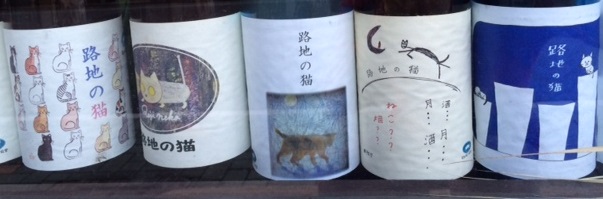 路地の猫
Roji Neko
路地の猫
路地の猫
路地の猫
酒…
月…
月…
酒…
ねこ？？
路地の猫